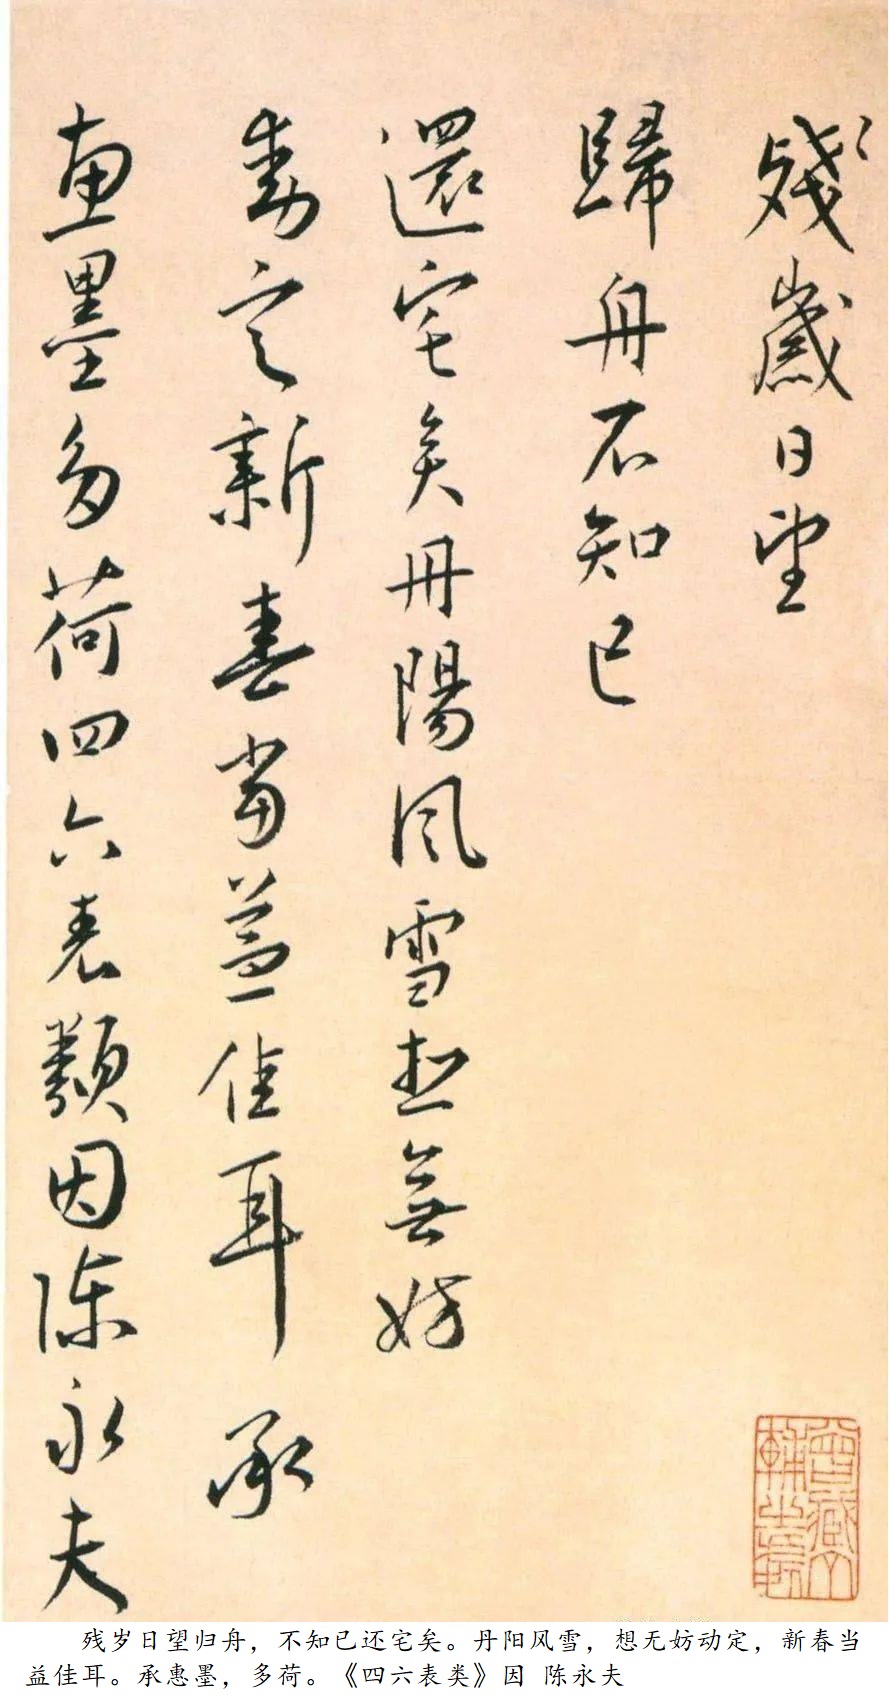 殘歲日望
歸舟不知已
還宅矣丹陽風雪想無妨
動定新春當益佳耳承
惠墨多荷四六表類因陳永夫
残岁日望归舟，不知已还宅矣。丹阳风雪，想无妨动定，新春当
益佳耳。承惠墨，多荷。《四六表类》因 陈永夫